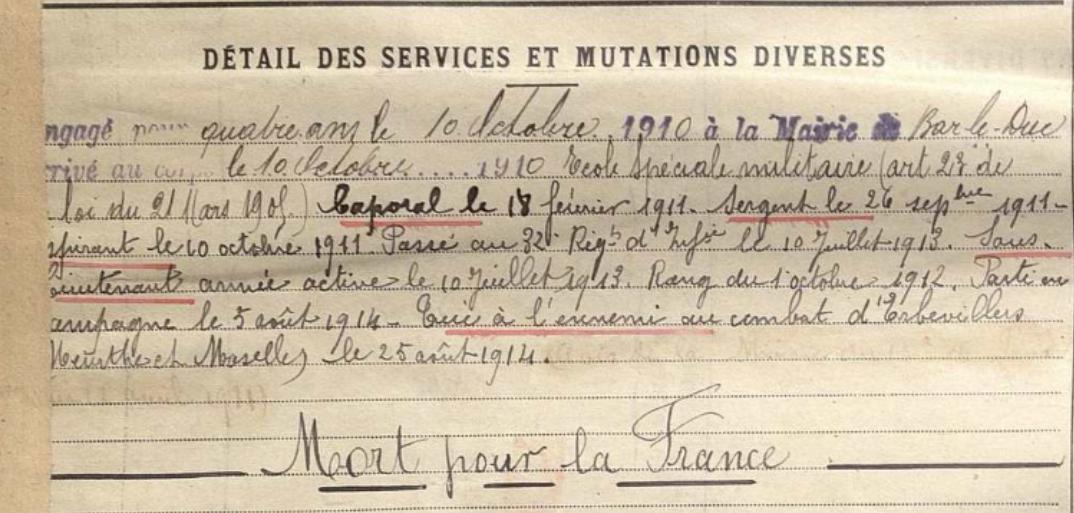 DÉTAIL DES SERVICES ET MUTATIONS DIVERSES
ngagé pour quatre ans le 10 Octobre 1910 à la Mairie de Bar-le-Duc
rrivé au corps le 10 Octobre .... 1910 Ecole spéciale militaire (art 23 de
loi du 21 Mars 1905.) Caporal le 18 février 1911. Sergent le 26 septbre 1911-
spirant le 10 octobre 1911. Passé au 32e Régt d'Infie le 10 Juillet 1913. Sous-
Lieutenant armée active le 10 Juillet 1913. Rang du 1 octobre 1912. Parti en
ampagne le 5 août 1914- Tué à l'ennemi au combat d'Erbevillers
Meurthe et Moselle) le 25 août 1914.
Mort pour la France